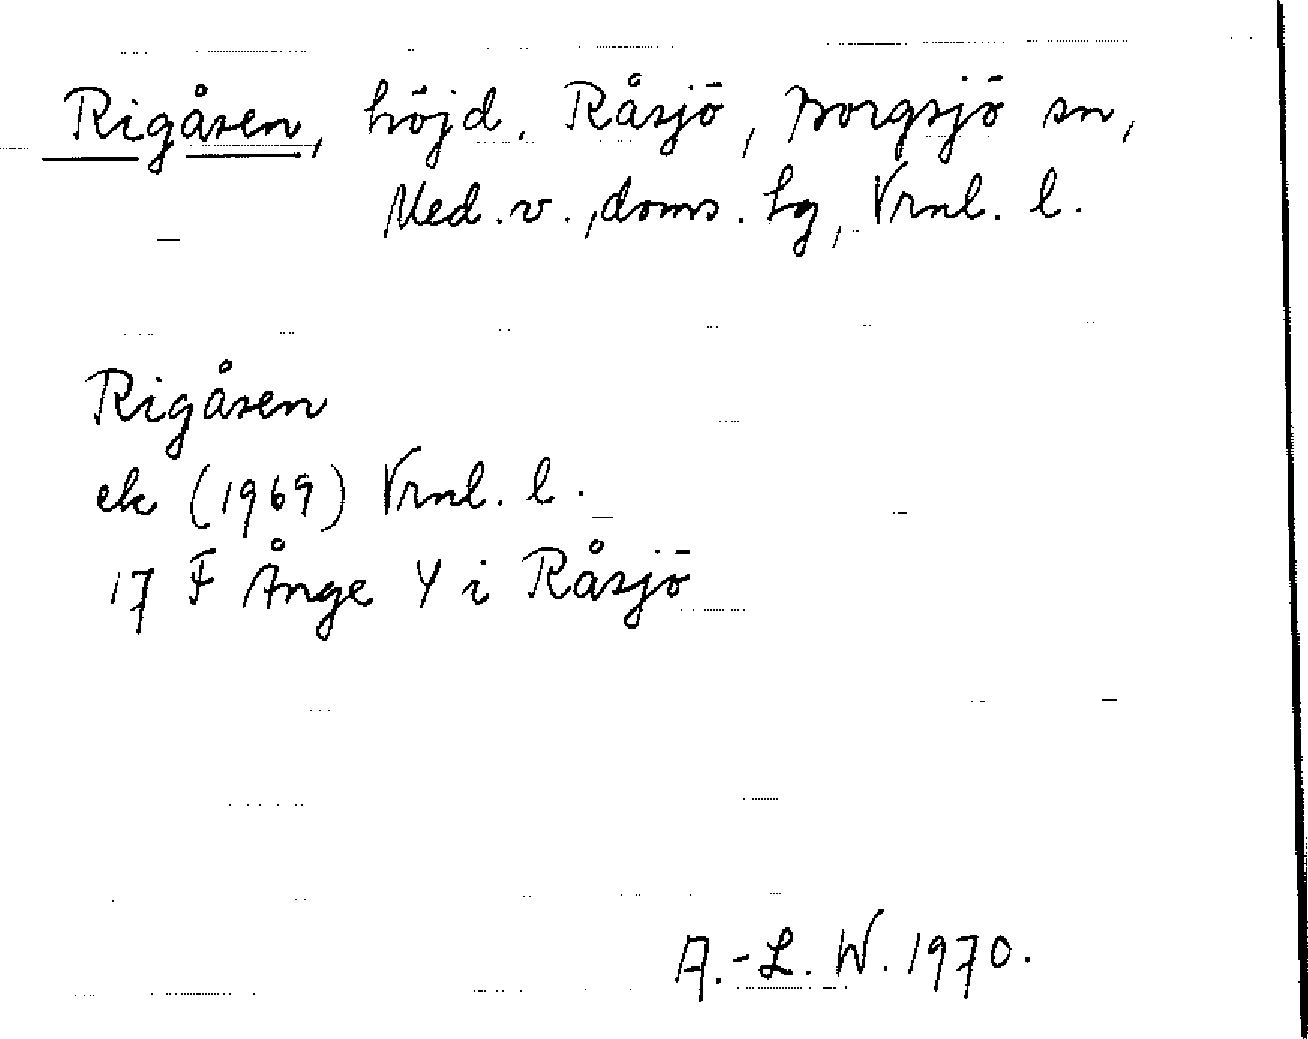 Rigåsen, höjd. Råsjö, Borgsjö sn,
Med. v., doms. hg, Vrnl. l.
Rigåsen
ek (1969) Vrnl. l.
17 F Ånge Y i Råsjö
A.-L. W. 1970.